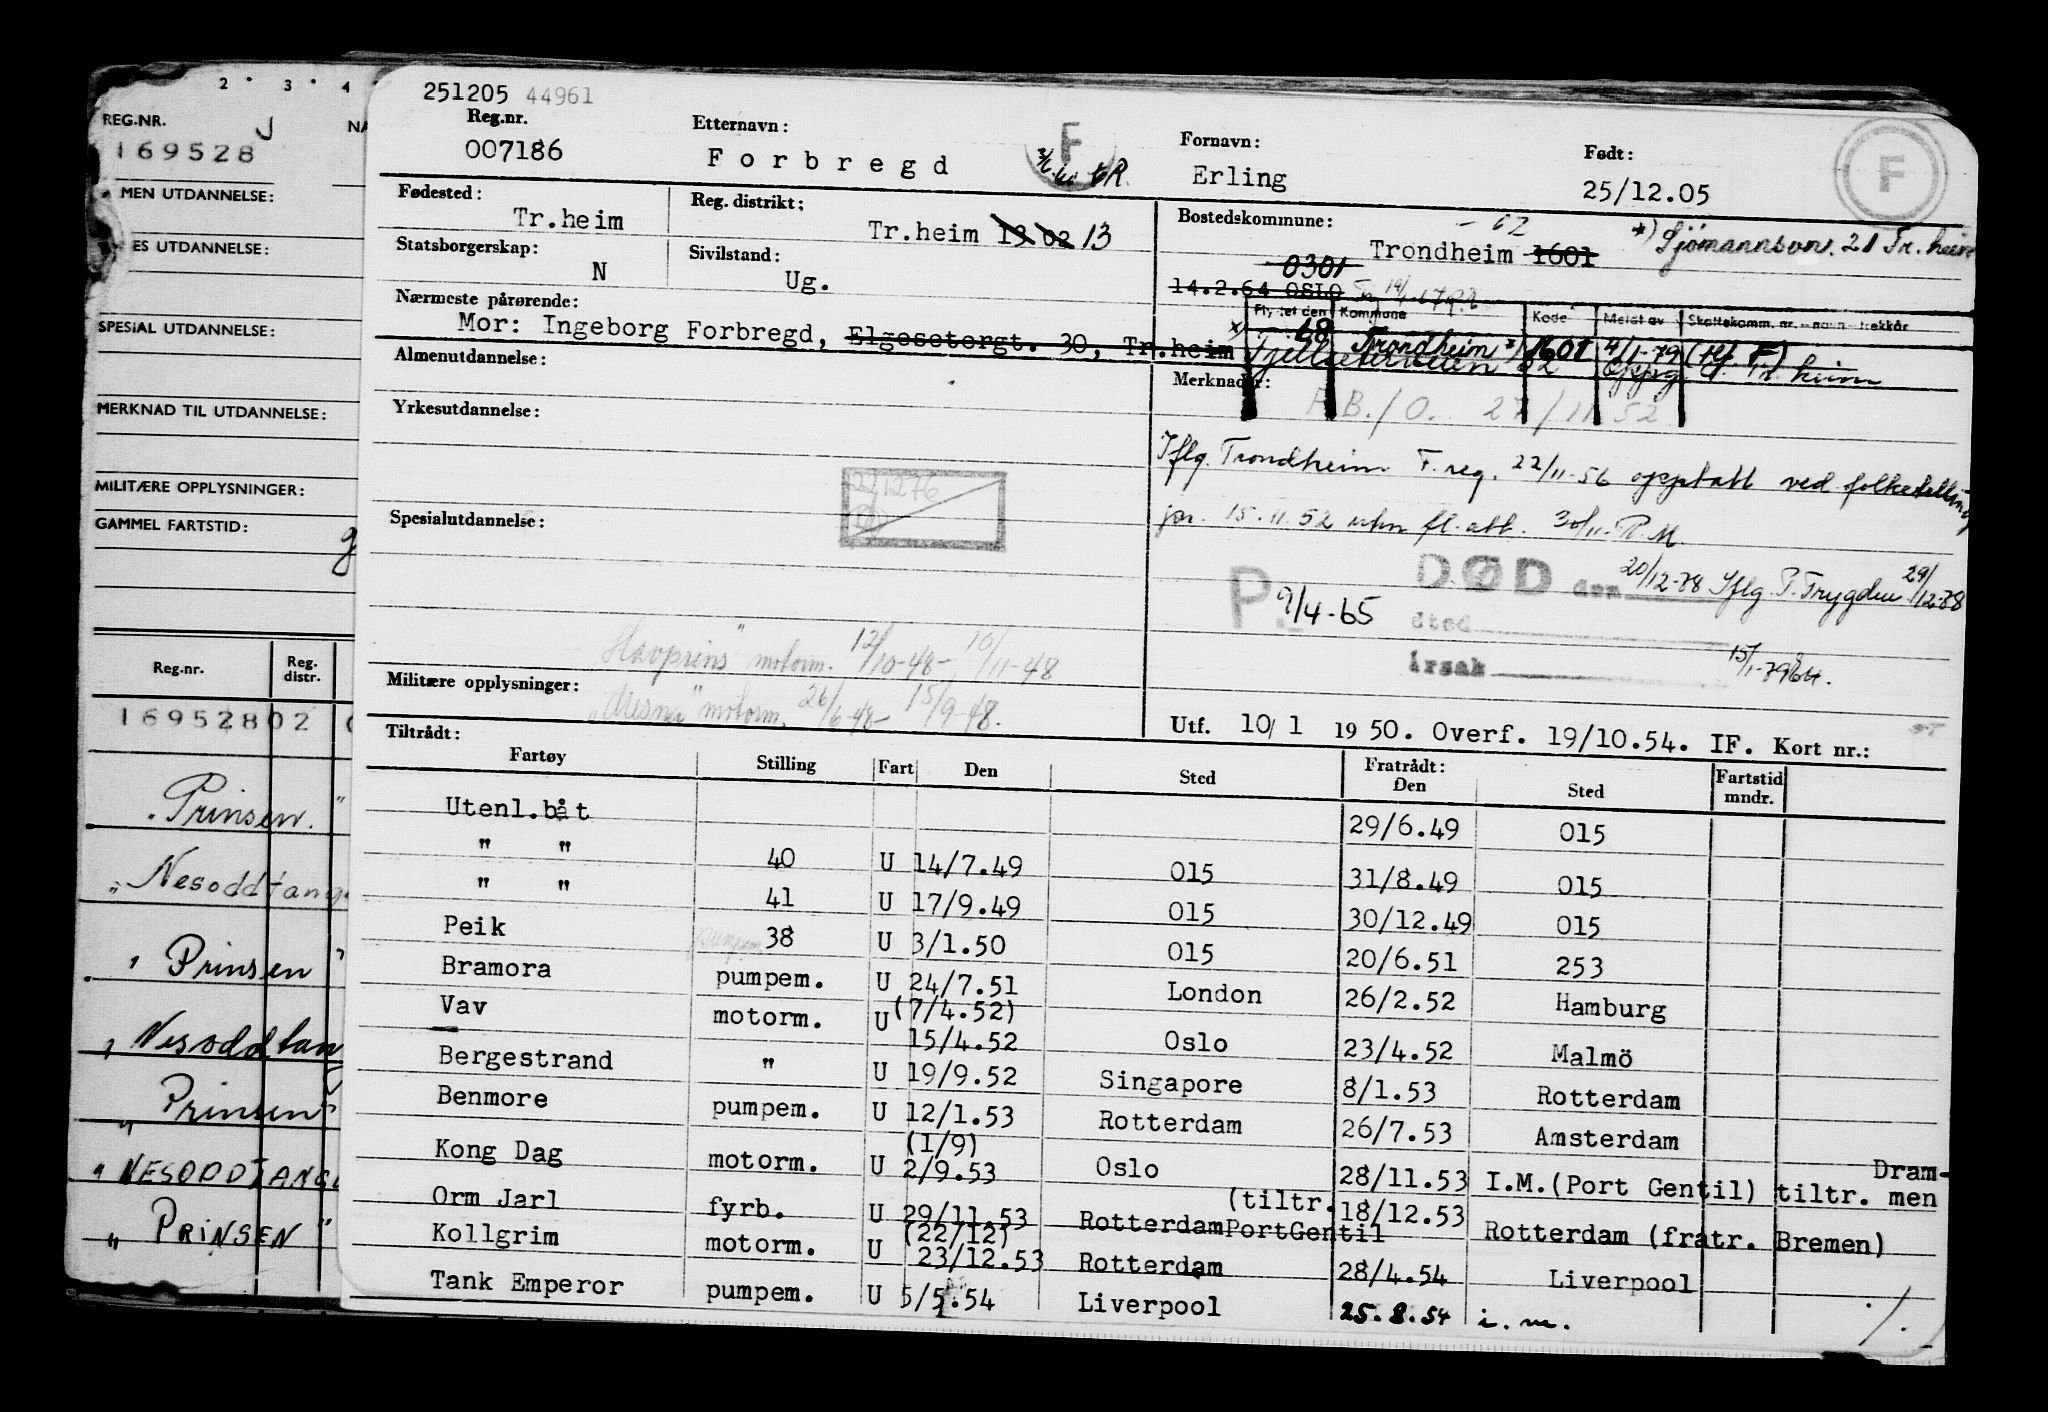 2 · 3 · 4
REG.NR.
J
NA
169528
MEN UTDANNELSE:
ES UTDANNELSE:
SPESIAL UTDANNELSE:
MERKNAD TIL UTDANNELSE:
MILITÆRE OPPLYSNINGER:
GAMMEL FARTSTID:
Reg.nr.
Reg. distr.
169528 02
"Prinsen"
"Nesoddtang
"Prinsen"
"Nesoddtan
"Prinsen"
"NESODDTANG
"PRINSEN"
251205 44961
Reg.nr.
007186
Etternavn:
Forbregd
F
Fornavn:
Erling
Født:
25/12.05
F
Fødested:
Tr.heim
Reg. distrikt:
Tr.heim 19 02 13
Bostedskommune:
- 62
Trondheim 1601
*) Sjömannsvn. 21 Tr. heim
Statsborgerskap:
N
Sivilstand:
Ug.
0301
14.2.64 OSLO
Nærmeste pårørende:
Mor: Ingeborg Forbregd, Elgesetergt. 30, Tr.heim
Flyttet den Kommune Kode Meldt av Skattekomm. nr. - navn - trekkår
x) 68 Trondheim x) 1601 4/1-79
Almenutdannelse:
Merknader:
P.B./O. 27/11 52
Yrkesutdannelse:
Iflg. Trondheim F.reg. 22/11-56 opptatt ved folketelling
pr. 15.11.52 utn fl. att. 30/11- R.M.
221276
Spesialutdannelse:
DØD den 20/12-78 Iflg. P. Trygden 29/12-78
P. 9/4-65
sted
årsak
15/1-79
"Havprins" motorm. 12/10-48- 10/11-48
Militære opplysninger:
"Mesna" motorm. 26/6-48- 15/9-48.
Utf. 10/1 1950. Overf. 19/10.54. IF. Kort nr.:
Tiltrådt:
Fartøy Stilling Fart Den Sted Fratrådt: Den Sted Fartstid mndr.
Utenl.båt 29/6.49 015
" " 40 U 14/7.49 015 31/8.49 015
" " 41 U 17/9.49 015 30/12.49 015
Peik pumpem 38 U 3/1.50 015 20/6.51 253
Bramora pumpem. U 24/7.51 London 26/2.52 Hamburg
Vav motorm. U (7/4.52) 15/4.52 Oslo 23/4.52 Malmö
Bergestrand " U 19/9.52 Singapore 8/1.53 Rotterdam
Benmore pumpem. U 12/1.53 Rotterdam 26/7.53 Amsterdam
Kong Dag motorm. U (1/9) 2/9.53 Oslo 28/11.53 I.M.(Port Gentil) tiltr. Drammen
Orm Jarl fyrb. U 29/11.53 Rotterdam (tiltr. PortGentil 18/12.53 Rotterdam (fratr. Bremen)
Kollgrim motorm. U (22/12) 23/12.53 Rotterdam 28/4.54 Liverpool
Tank Emperor pumpem. U 5/5.54 Liverpool 25.8.54 i.m.
./.